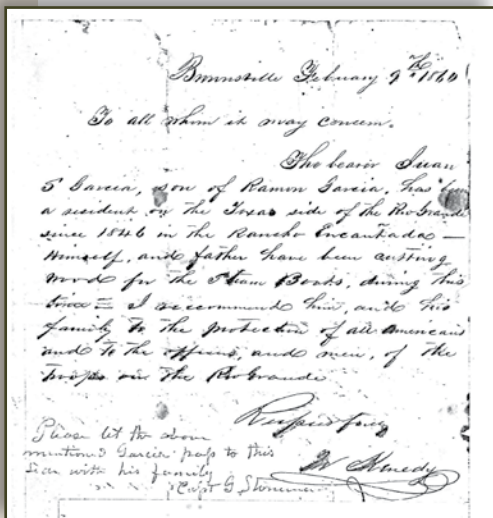 Brownsville February 9th 1860
To all whom it may concern.
The bearer Juan
S Garcia, son of Ramon Garcia, has been
a resident on the Texas side of the Rio Grande
since 1846 in the Rancho Encantada —
Himself, and father have been cutting
wood for the Steam Boats, during this
time = I recommend him, and his
family to the protection of all Americans
and to the officers, and men, of the
troops on the Rio Grande
Respectfully
M Kenedy
Please let the above
mentioned Garcia pass to this
side with his family
Capt G. Stoneman